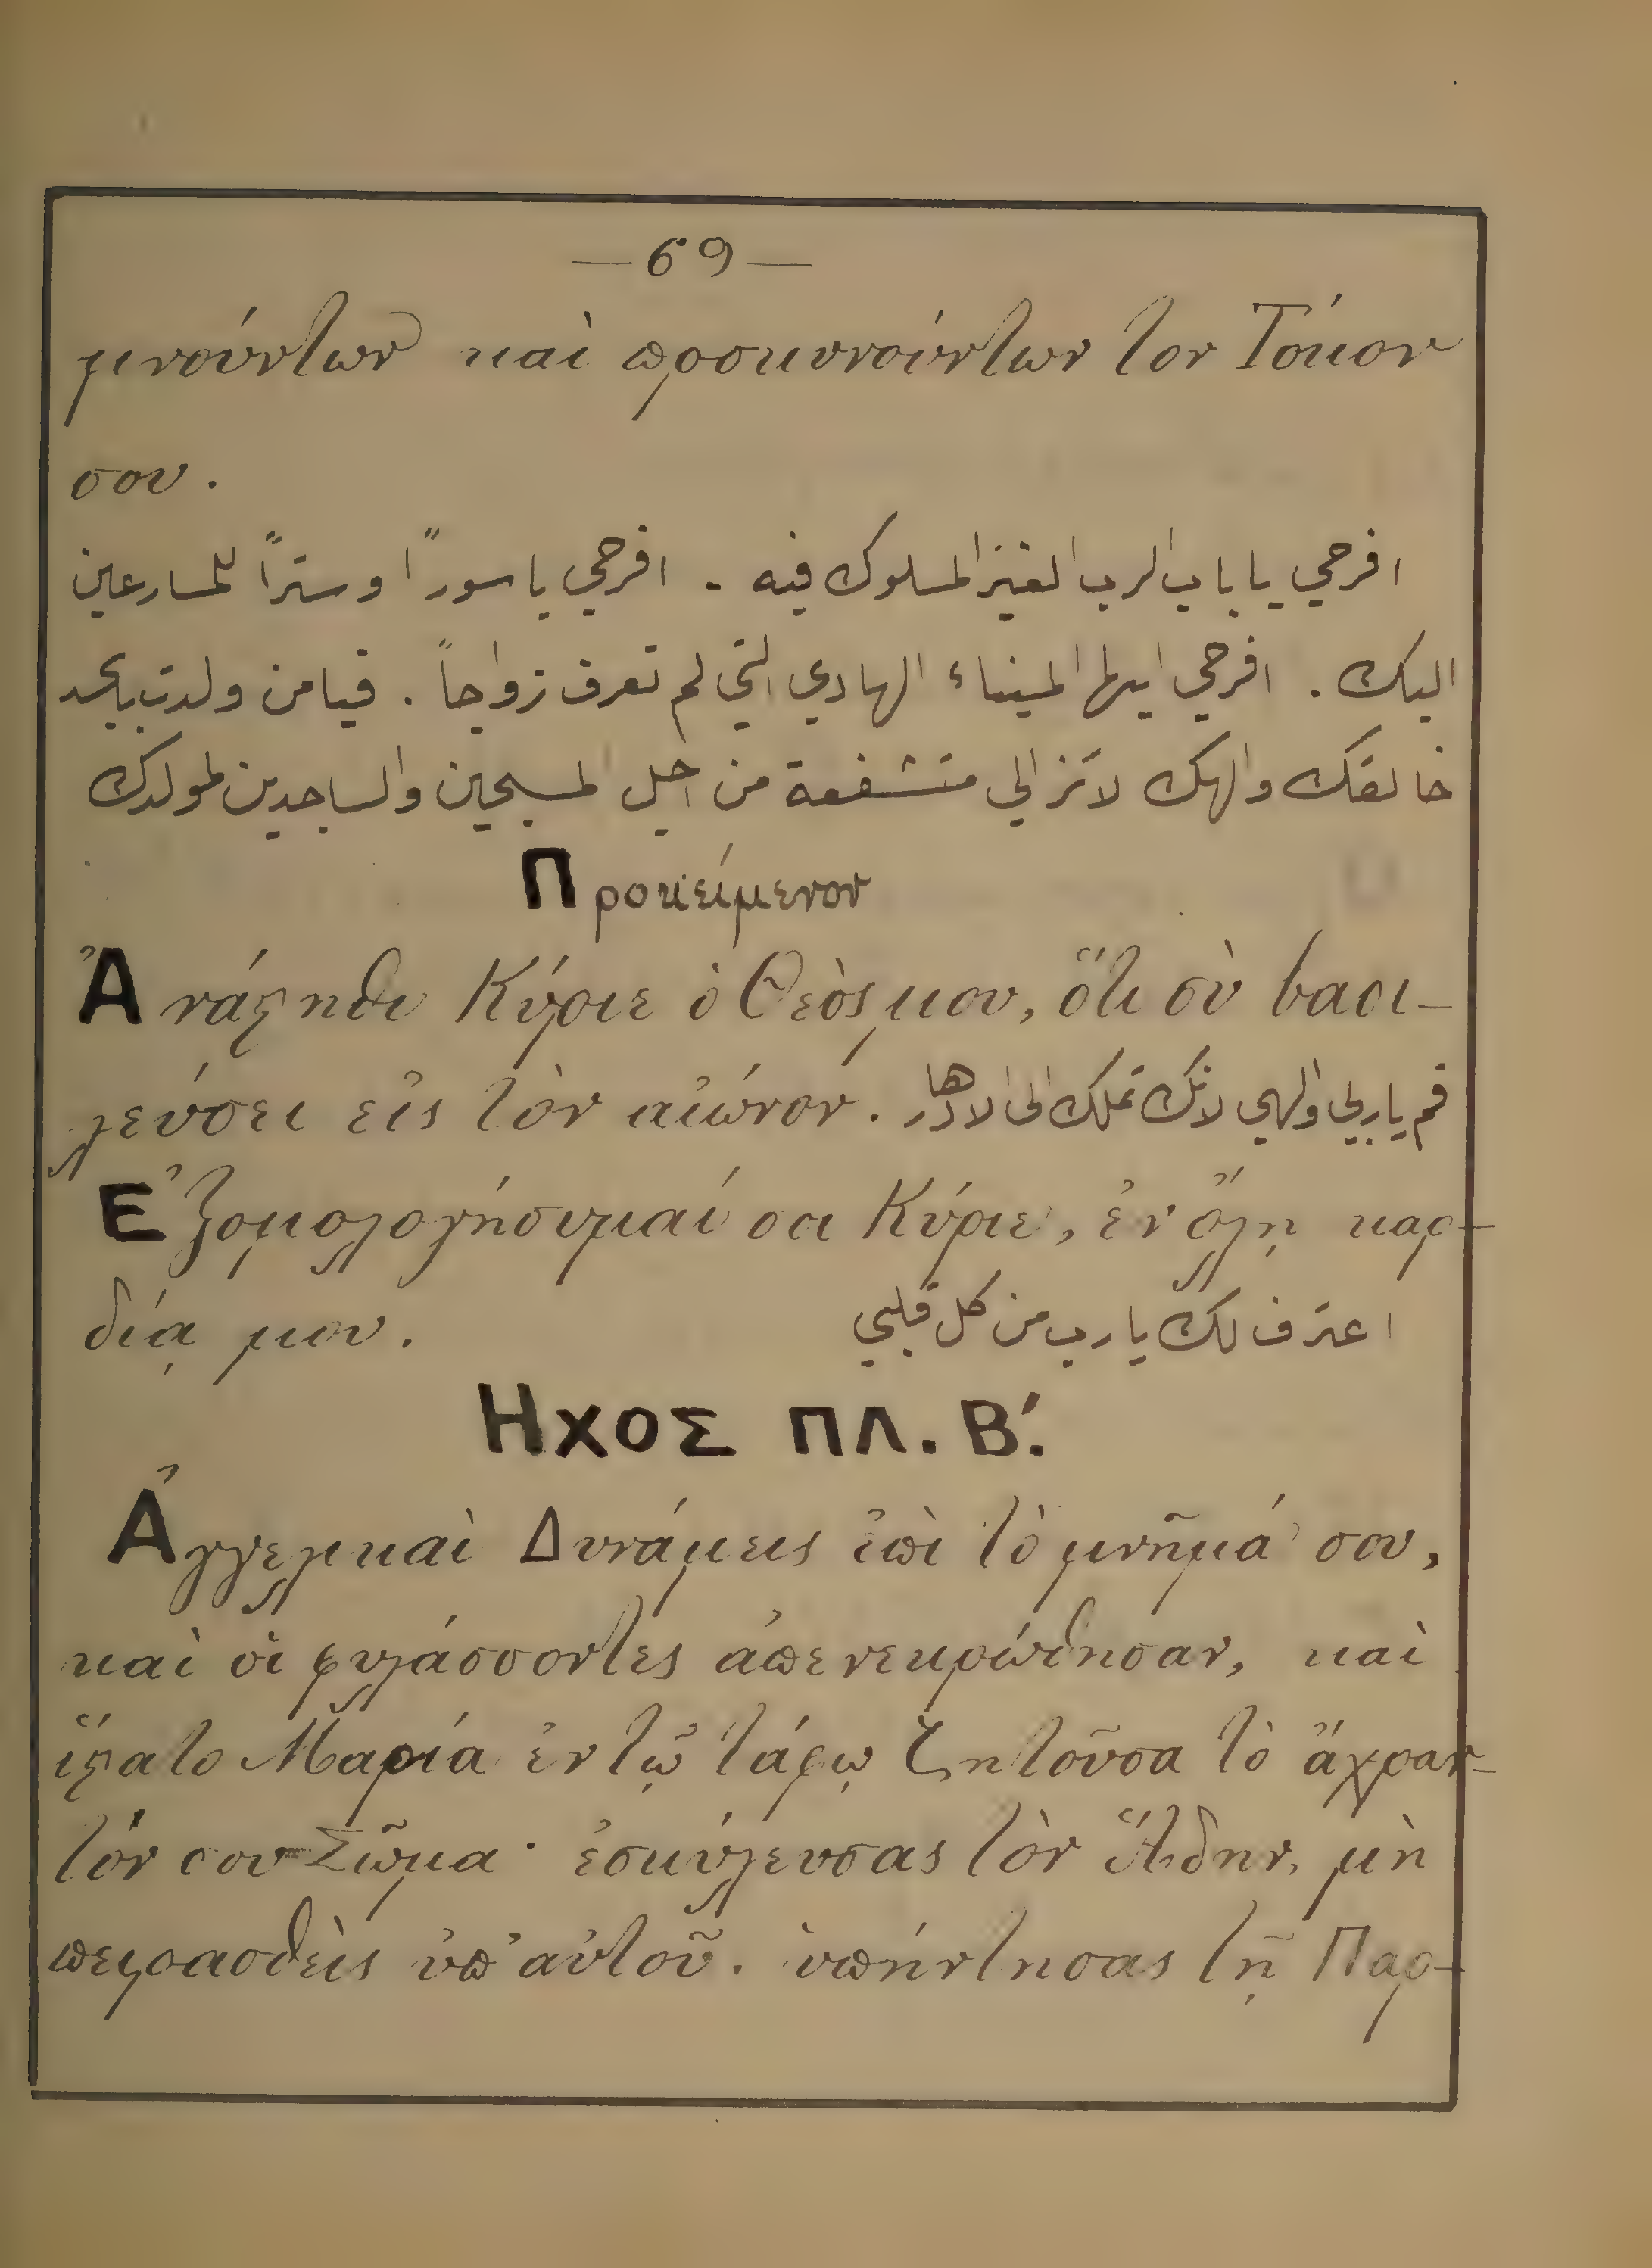 —69—
μνούντων καὶ προσκυνούντων τον Τόκον
σου.
افرحي يا باب الرب الغيز المسلوك فيه . افرحي يا سوراً وستراً للمسارعين
اليك . افرحي ايتها الميناء الهادي التي لم تعرف زواجاً . فيامن ولدت بالجسد
خالقك والهك لا تزالي متشفعة من اجل المسبحين والساجدين لمولدك
Προκείμενον
Ἀνάστηθι Κύριε ὁ Θεός μου, ὅτι σὺ βασι-
λεύσει εἰς τὸν αἰώνον. قم يا ربي والهي لانك تملك الى الادهار
Ἐξομολογήσομαί σοι Κύριε, ἐν ὅλῃ καρ-
δίᾳ μου. اعترف لك يا رب من كل قلبي
ΗΧΟΣ ΠΛ. Β΄.
Ἀγγελικαὶ Δυνάμεις ἐπὶ τὸ μνῆμά σου,
καὶ οἱ φυλάσσοντες ἀπενεκρώθησαν, καὶ
ἵστατο Μαρία ἐν τῷ τάφῳ ζητοῦσα τὸ ἄχραν-
τόν σου Σῶμα· ἐσκύλευσας τὸν ᾍδην, μὴ
πειρασθεὶς ὑπ' αὐτοῦ. ὑπήντησας τῇ Παρ-